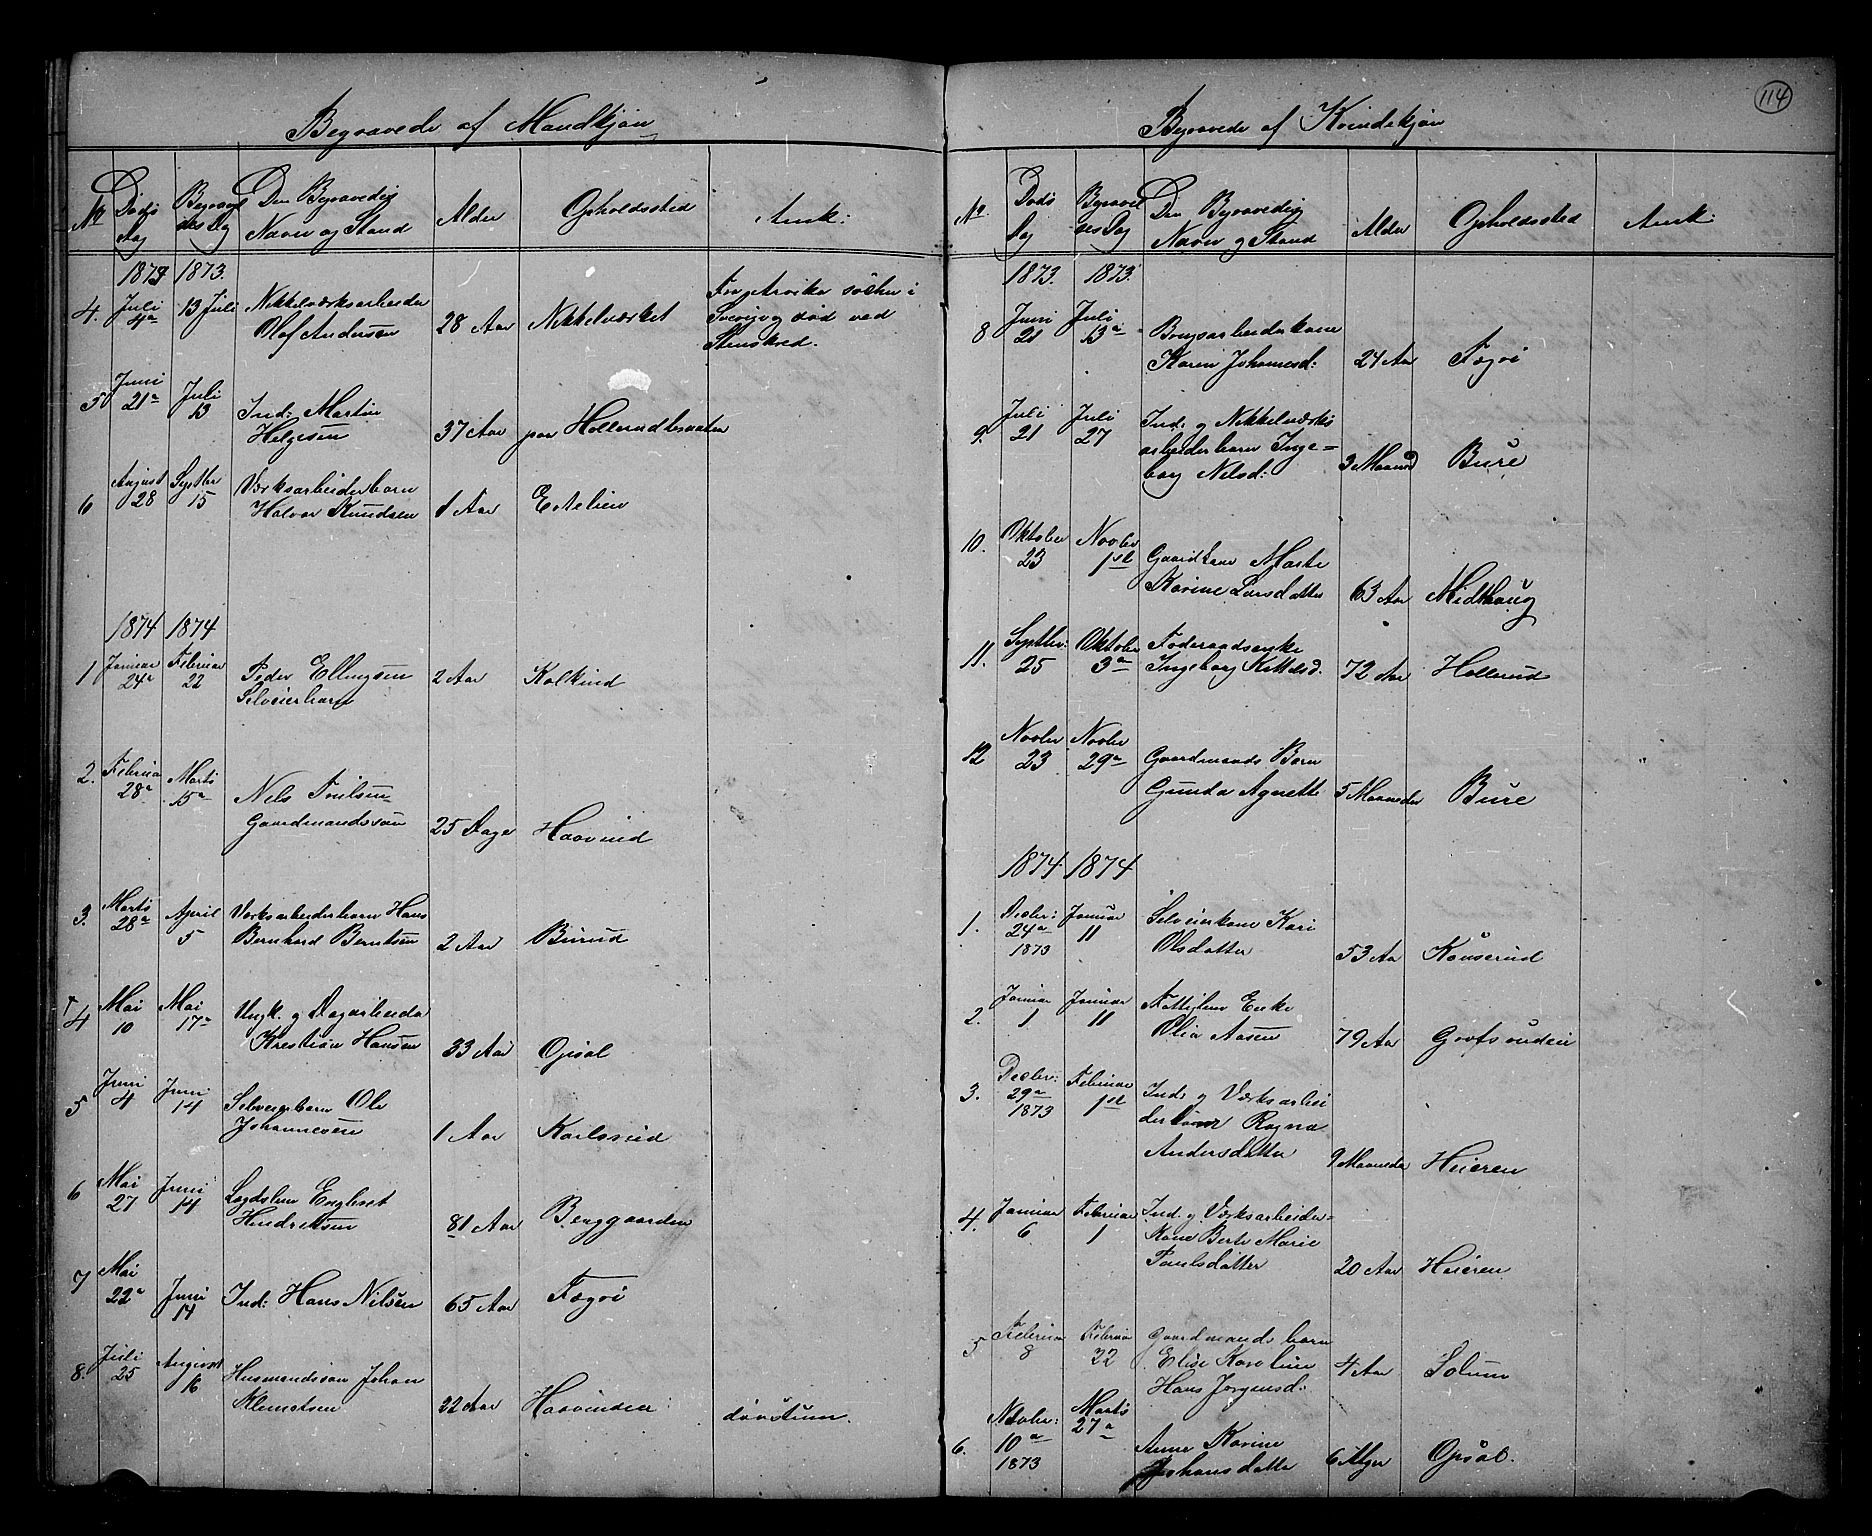 114
Begravede af Mandkjøn
No Døds Dag Begravelses Dag Den Begravedes Navn og Stand Alder Opholdssted Ank:
1873 1873.
4. Juli 4de 13 Juli Nikkelværksarbeider Olaf Andersen 28 Aar Nikkelværket Fra Arvika sochn i
Sverige død ved
Stenskred.
5 Juni 21de Juli 13 Ind: Martin
Helgesen 37 Aar paa Hollerudbraaten
6 August 28 Septbr 15 Værksarbeiderbarn
Halvor Knudsen 1 Aar Eetelien
1874 1874
1 Januar 24de Februar 22 Peder Ellingsen
Selveierbarn 2 Aar Kolkind
2. Februar 28de Marts 15de Nils
Gaardmandssøn 25 Dage Haavind
3. Marts 28de April 5 Værksarbeiderbarn Hans
Bernhard Berntsen 2 Aar Burud
4 Mai 10 Mai 17de Ungk. og Dagarbeider
Kristian Hansen 33 Aar Opsal
5 Juni 4 Juni 14 Selveierbarn Ole
Johannesen 1 Aar Karlsrud
6 Mai 27 Juni 14 Lægdslem Engebret
Hendriksen 81 Aar Berggaarden
7 Mai 22de Juni 14 Ind: Hans Nilsen 65 Aar Fægri
8. Juli 25 August 16 Husmandssøn Johan
Klemetsen 22 Aar Haavinden døvstum.
Begravede af Kvindekjøn
No. Døds Dag Begravelses Dag Den Begravedes Navn og Stand Alder Opholdssted Ank:
1873. 1873.
8 Juni 21 Juli 13de Brugsarbeiderkone
Karen Johannesd: 24 Aar Fægri
9. Juli 21 Juli 27 Ind. og Nikkelværks
arbeiderbarn Inge=
borg Nilsd: 3 Maaned Bure
10. Oktober 23 Novbr 1ste Gaardkone Marte
Karine Larsdatter 63 Aar Midthaug
11. Septbr: 25 Oktober 3de Føderaadsenke
Ingeborg Kettelsd. 72 Aar Hollerud
12 Novbr 23 Novbr 29de Gaardmands Barn
Gunda Agnette 5 Maaneder Bure
1874. 1874
1. Decbr: 24de 1873 Januar 11 Selveierkone Kari
Olsdatter 53 Aar Kauserud
2. Januar 1 Januar 11 Fattiglem Enke
Olia Aasen 79 Aar
3. Decbr: 29de 1873 Februar 1ste Ind. og Værksarbei
derbarn Ragna
Andersdatter 9 Maaneder Heieren
4. Januar 6 Februar 1 Ind. og Værksarbeider=
Kone Berte Marie
Paulsdatter 20 Aar Heieren
5 Februar 8 Februar 22 Gaardmands barn
Elise Karoline
Hans Jørgensd: 4 Aar Solum
6. Novbr: 10de 1873 Marts 27de Anne Karine
Johansdatter 6 Opsal.